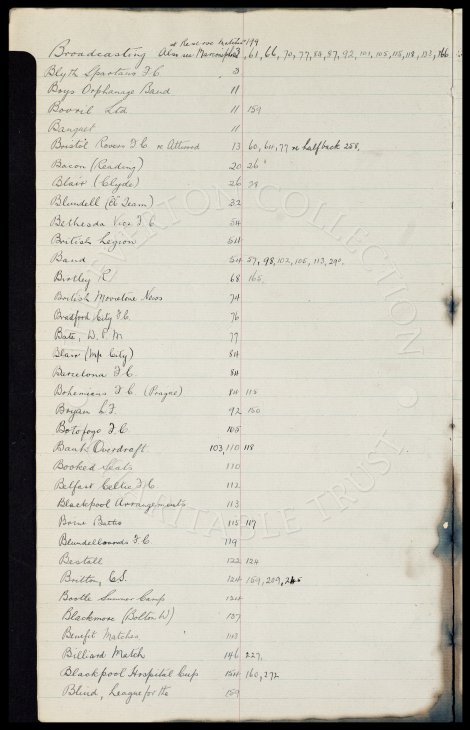 at Reserve Matches 199
Broadcasting Also see 3, 61, 66, 70, 77, 84, 87, 92, 101, 105, 115, 118, 133, 166
Blyth Spartans F.C 3
Boys Orphanage Band 11
Bovril Ltd 11 159
Banquet 11
Bristol Rovers F.C. re Attwood 13 60, 64, 77 re halfback 258,
Bacon (Reading) 20 26
Blair (Clyde) 26 28
Blundell (A Team) 32
Bethesda Vics F.C 54
British Legion 54
Band 54 57, 98, 102, 105, 113, 290,
Brotley R 68 165
British Movietone News 74
Bradford City F.C. 76
Bate, W.P.M 77
Blair (Mr City) 84
Barcelona F.C. 84
Bohemians F.C (Prague) 84 115
Bryan L.F. 92 150
Botofogo F.C. 105
Bank Overdraft 103, 110 118
Booked Seats 110
Belfast Celtic F.C 112
Blackpool Arrangements 113
Brine Baths 115 117
Blundellsands F.C 119
Bestall 122 124
Britton, C.S. 124 159, 209, 265
Bootle Summer Camp 124
Blackmore (Bolton W) 137
Benefit Matches 143
Billiard Match 146 227,
Blackpool Hospital Cup 154 160, 272
Blind, League for the 159
EVERTON COLLECTION
CHARITABLE TRUST